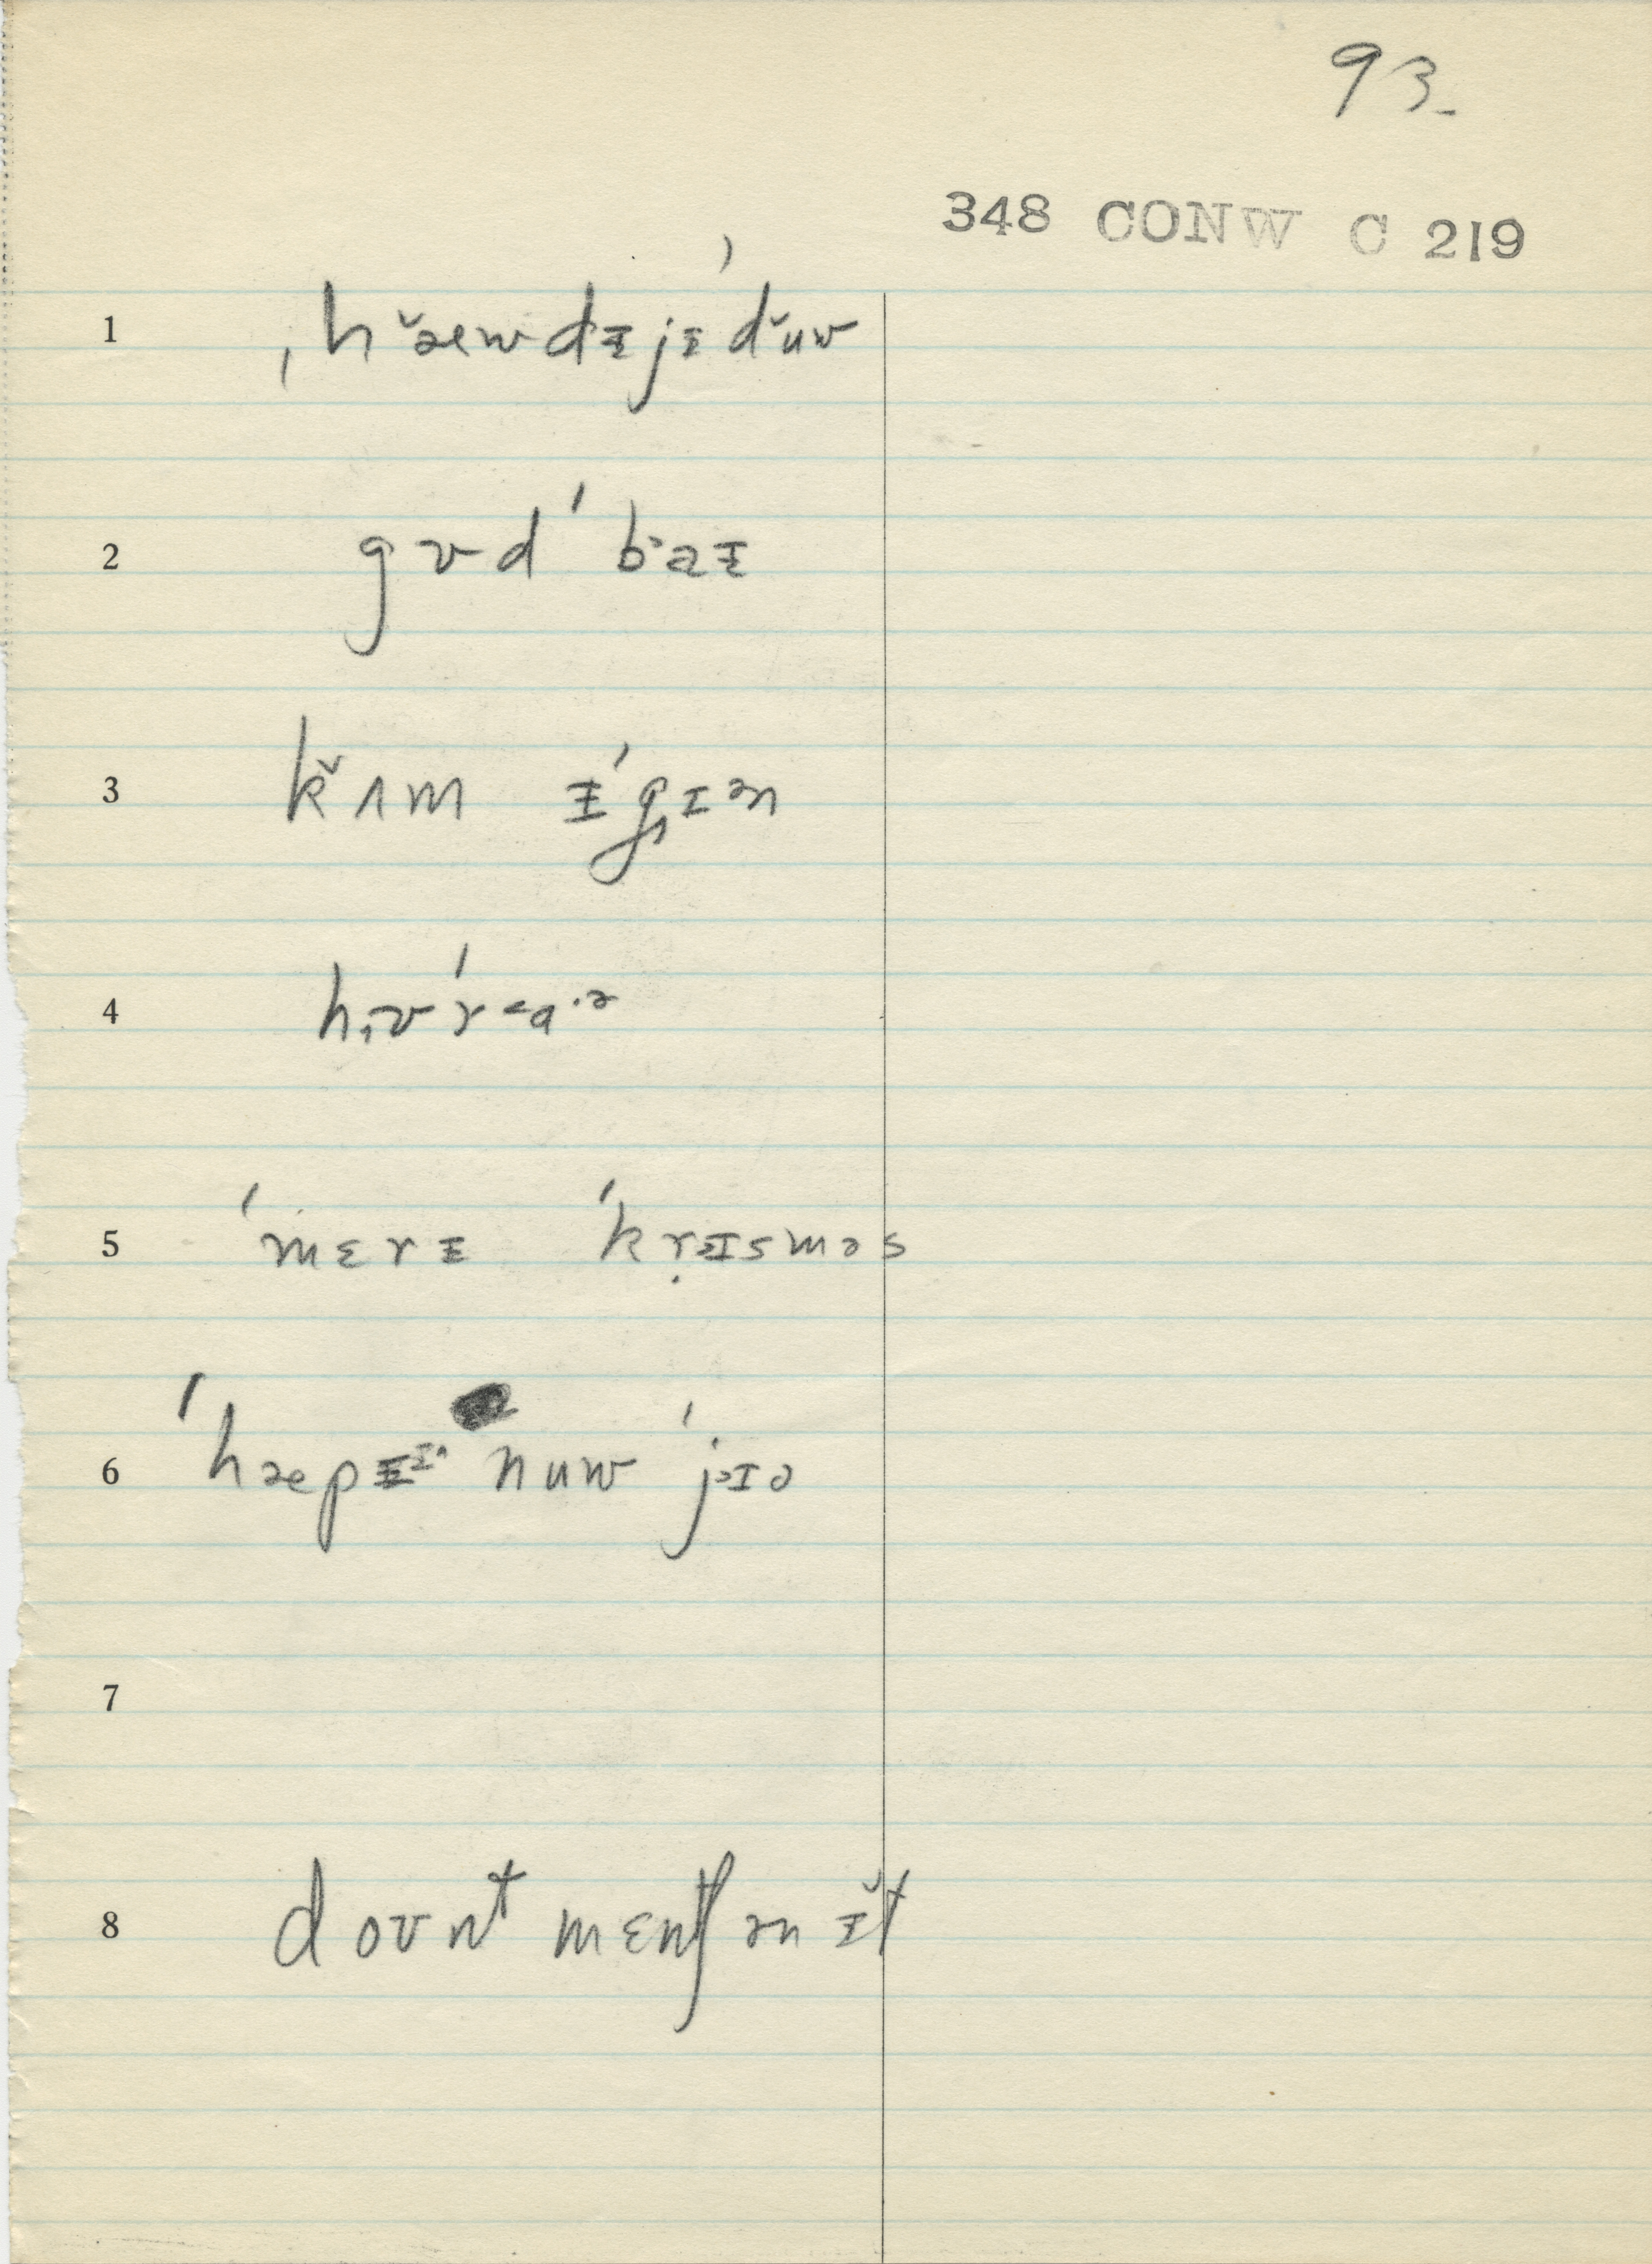 93.
348 CONW C 219
1 ˌhˇæwdᵻjᵻˈdˇuw
2 gʊdˈbˑaᵻ
3 kˇʌm ᵻˈgɪən
4 hʊˈr<aˑə
5 ˈmɛrᵻ ˈkrɪsməs
6 ˈhæpᵻ nuw ˈjɪə
7
8 doʊnt mɛntʃən ᵻˇt